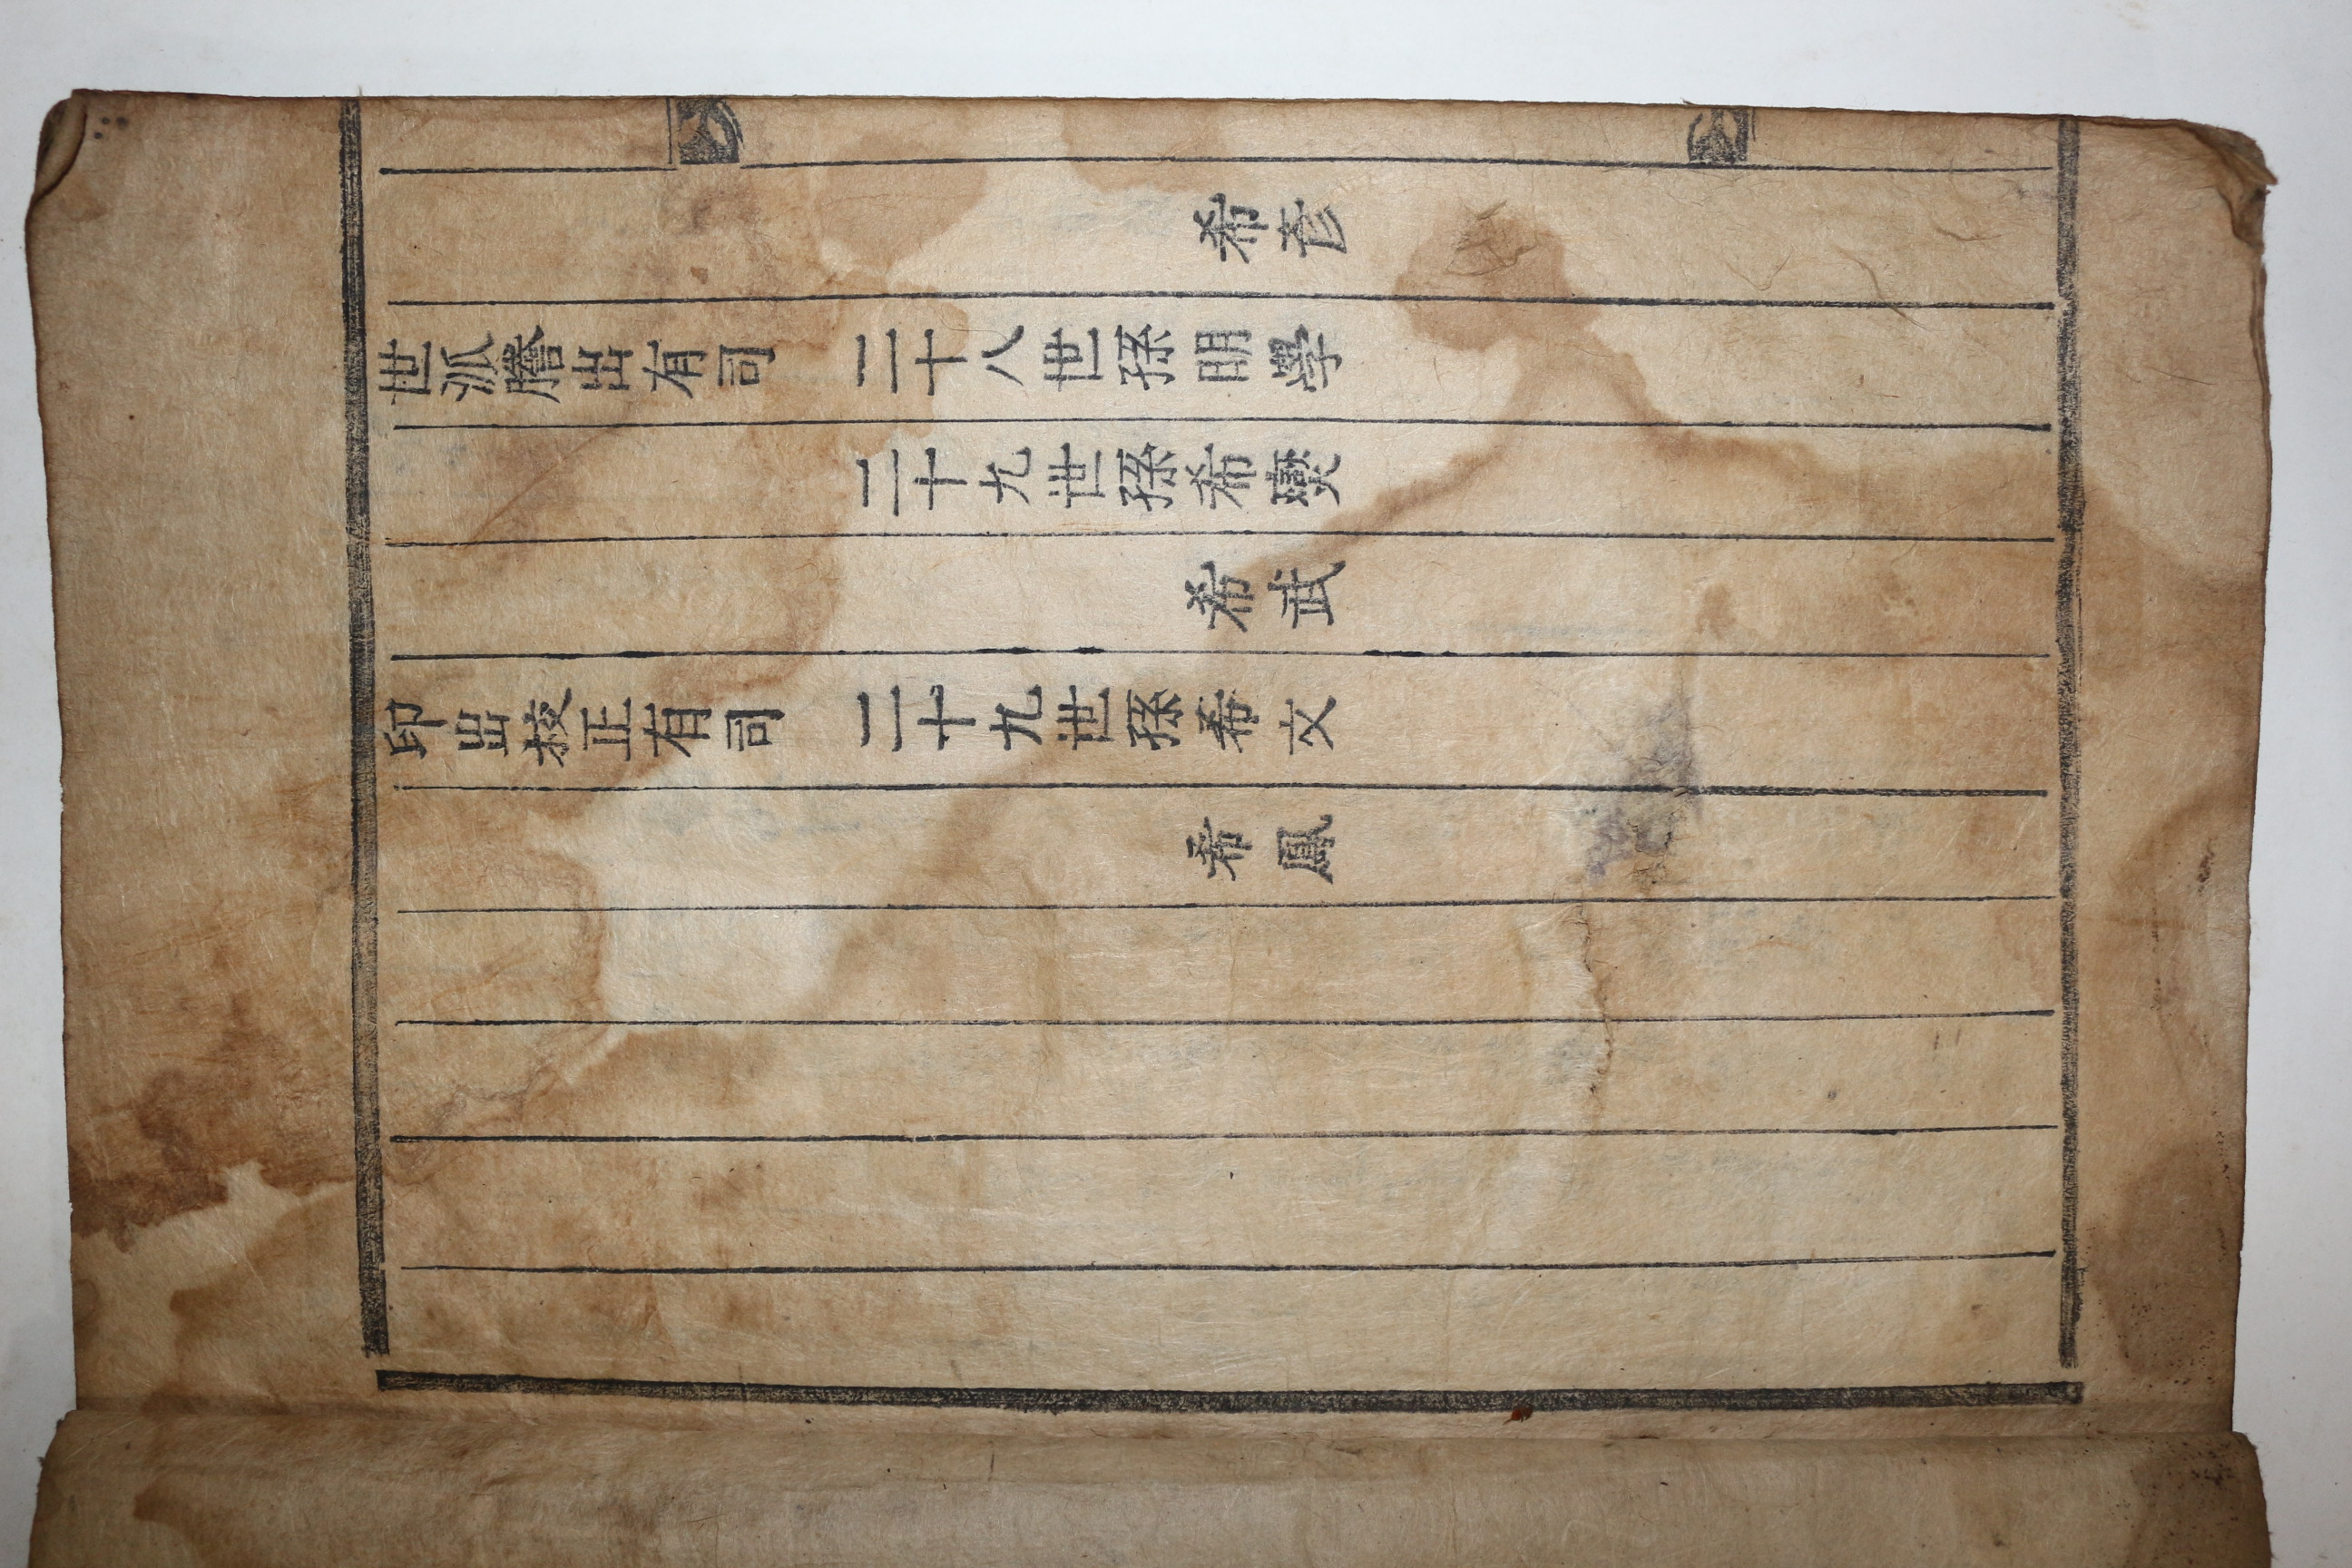 希彦
世派謄出有司 二十八世孫明學
二十九世孫希爕
希武
印出挍正有司 二十九世孫希文
希鳳